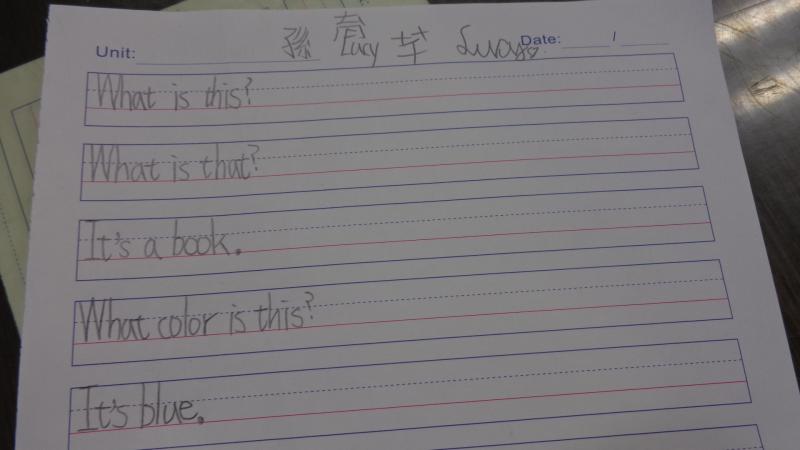 Unit: 孫 Lucy Date: /
What is this?
What is that?
It's a book.
What color is this?
It's blue.